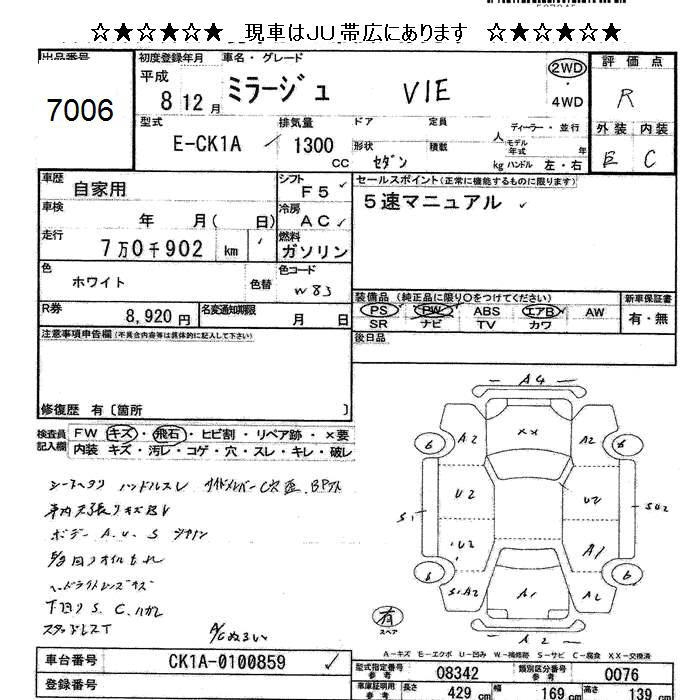 ☆★☆★☆★☆ 現車はJU帯広にあります ☆★☆★☆★☆
出品番号
7006
初度登録年月
平成
8 12 月
車名・グレード
ミラージュ VIE
2WD
・
4WD
評価点
R
外装 内装
E C
型式
E-CK1A
排気量
1300
cc
ドア
定員
人
ディーラー・並行
モデル年式 年
形状
セダン
積載
kg
ハンドル 左・右
車歴
自家用
シフト
F5
車検
年 月( 日)
冷房
AC
走行
7万0千902 km
燃料
ガソリン
色
ホワイト
色替
色コード
W83
R券
8,920 円
名変通知期限
月 日
セールスポイント(正常に機能するものに限ります)
5速マニュアル
装備品(純正品に限り○をつけてください)
PS PW ABS エアB AW
SR ナビ TV カワ
新車保証書
有・無
後日品
注意事項申告欄(不具合内容等は具体的に記入して下さい)
修復歴 有〔箇所 〕
検査員記入欄
FW キズ・飛石・ヒビ割・リペア跡・×要
内装 キズ・汚レ・コゲ・穴・スレ・キレ・破レ
シートヘタリ ハンドルスレ
ボデー A.U.S
ヘッドライトレンズキズ
下廻り S.C.ハガレ
スタッドレスT
A/Cぬるい
A4
A2 XX A2
6 6
U2 U2
S1 SU2
U2 A1
6 6
S1A2 A1 A2
A2
有
スペア
A-キズ E-エクボ U-凹み W-補修跡 S-サビ C-腐食 XX-交換済
車台番号
CK1A-0100859
登録番号
型式指定番号
参考
08342
類別区分番号
参考
0076
車庫証明用
参考
長さ 429 cm
幅 169 cm
高さ 139 cm